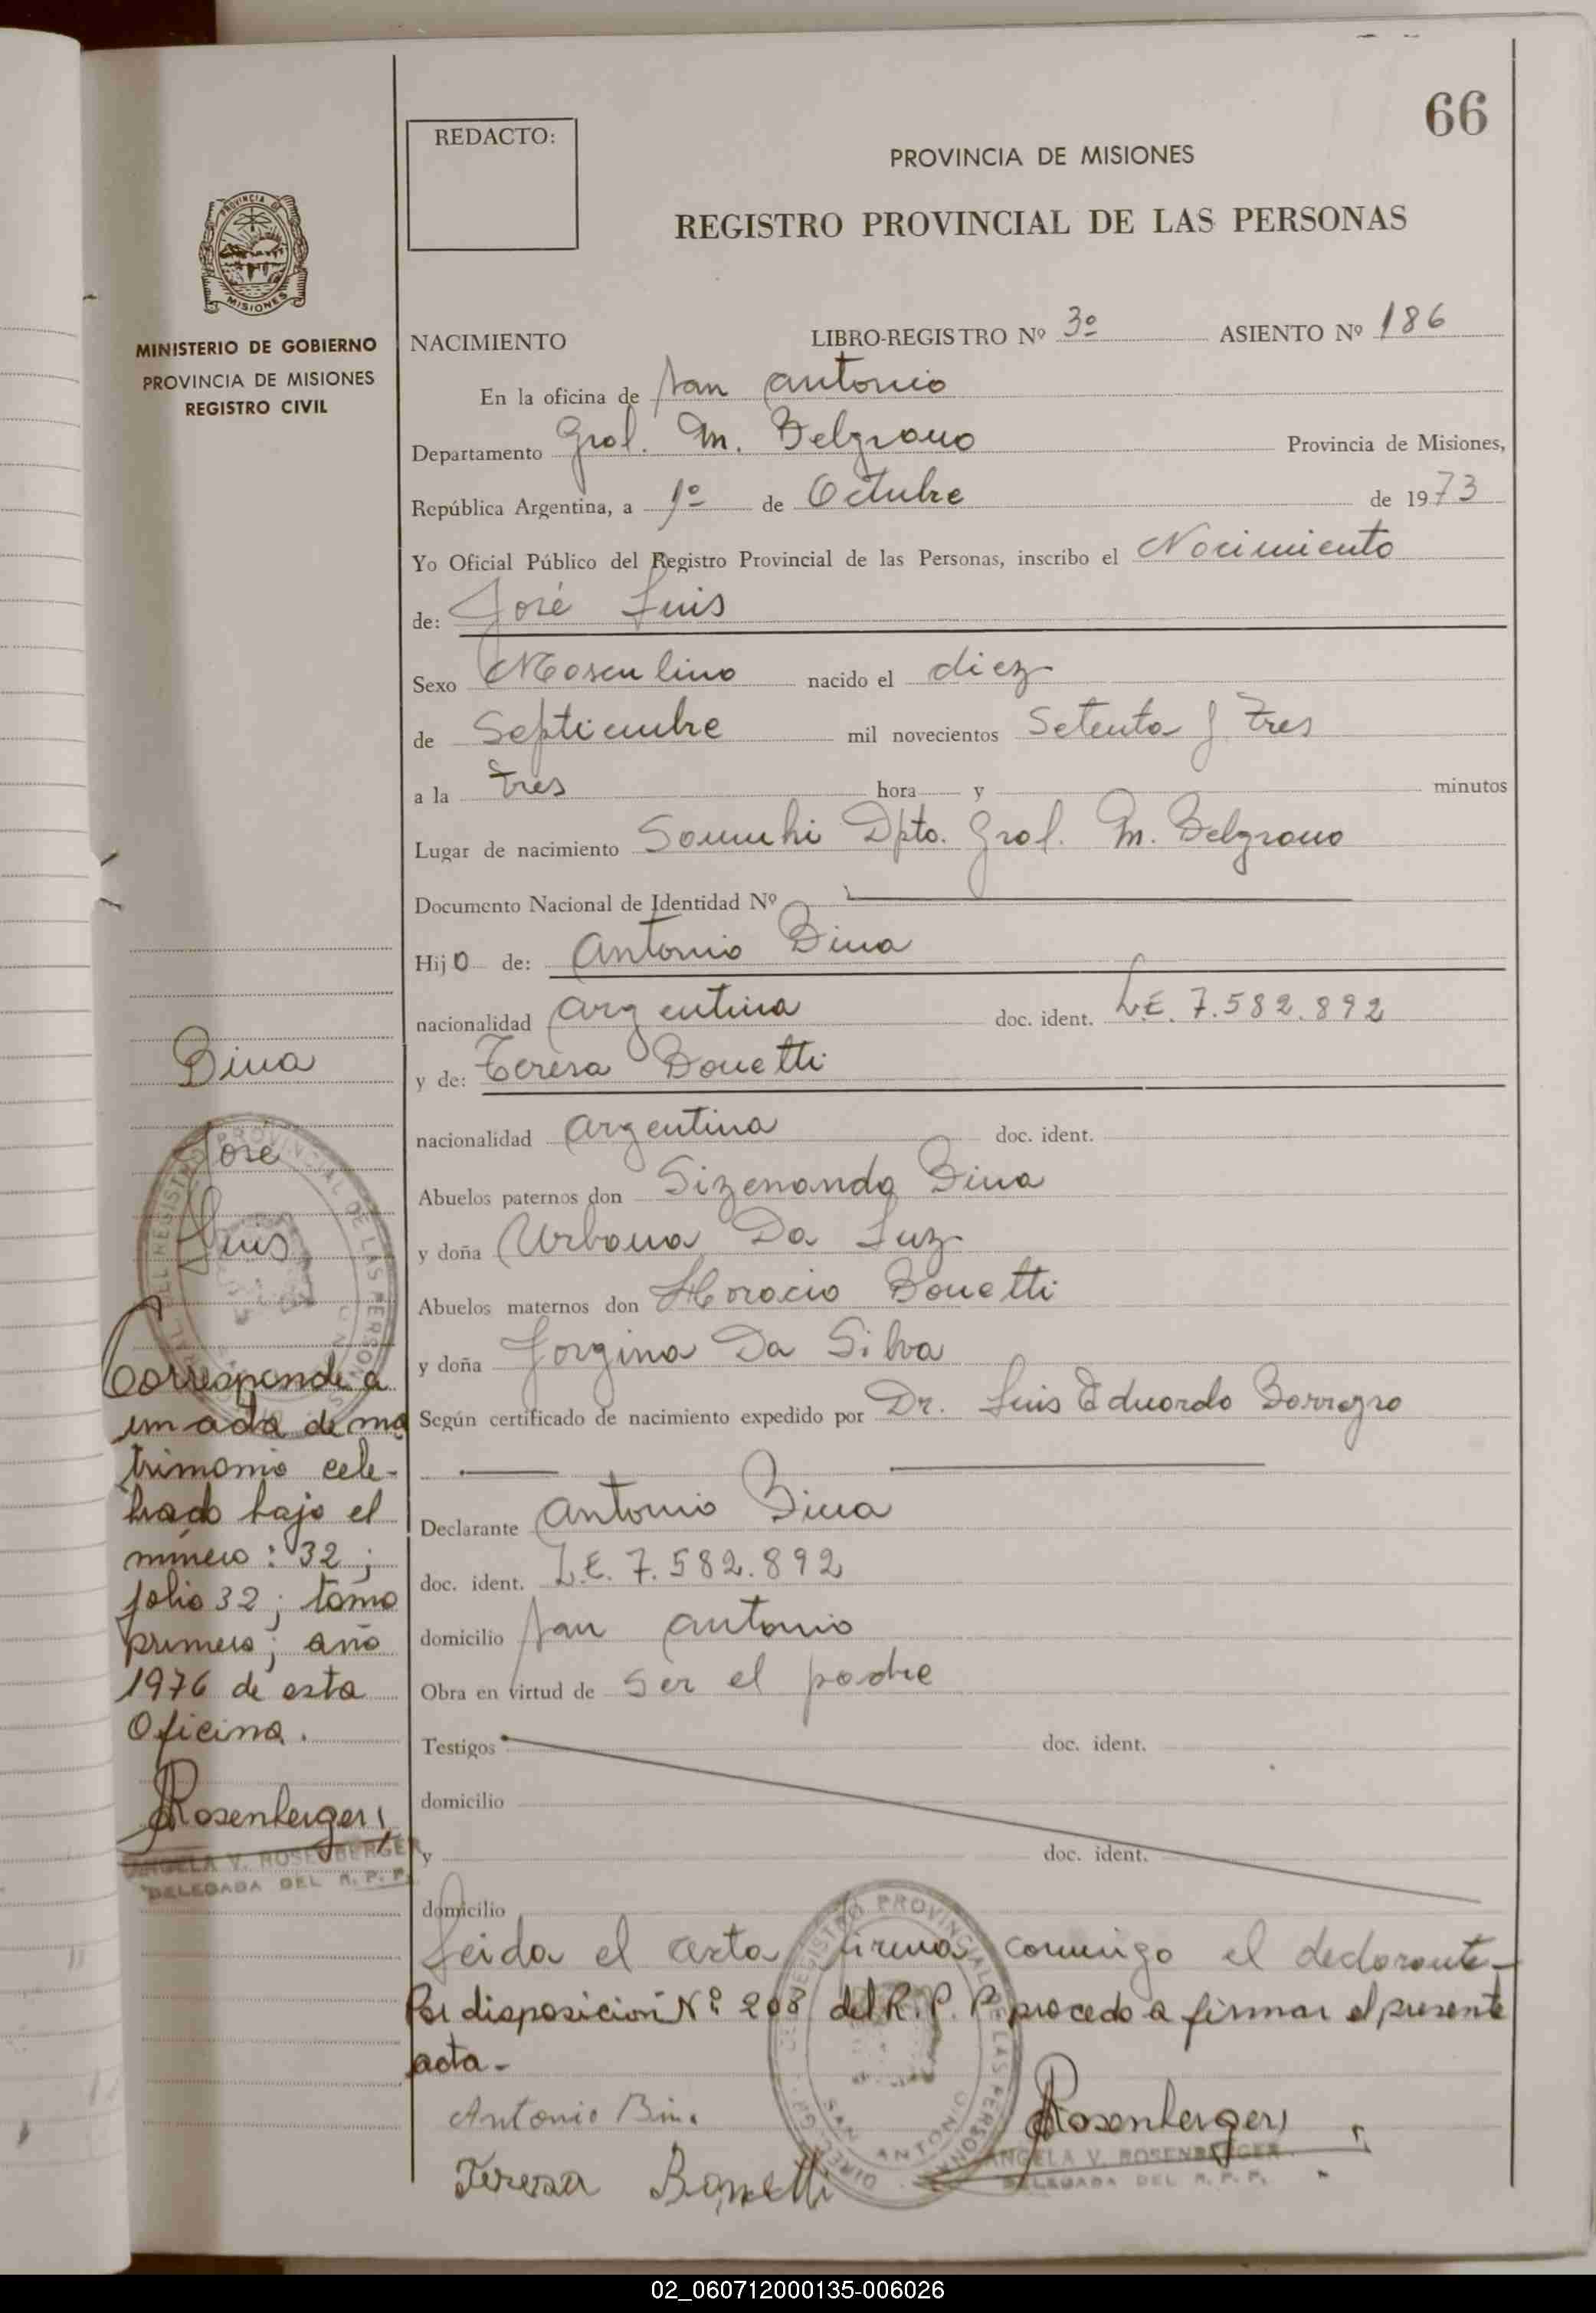 66
REDACTO:
PROVINCIA DE MISIONES
REGISTRO PROVINCIAL DE LAS PERSONAS
PROVINCIA
MISIONES
MINISTERIO DE GOBIERNO
PROVINCIA DE MISIONES
REGISTRO CIVIL
NACIMIENTO LIBRO-REGISTRO Nº 3º ASIENTO Nº 186
En la oficina de San Antonio
Departamento Gral. M. Belgrano Provincia de Misiones,
República Argentina, a 1º de Octubre de 1973
Yo Oficial Público del Registro Provincial de las Personas, inscribo el Nacimiento
de: José Luis
Sexo Masculino nacido el diez
de Septiembre mil novecientos Setenta y tres
a la tres hora y minutos
Lugar de nacimiento Dpto. Gral. M. Belgrano
Documento Nacional de Identidad Nº
Hijo de: Antonio Bina
nacionalidad argentina doc. ident. L.E. 7.582.892
y de: Teresa Bonetti
nacionalidad argentina doc. ident.
Abuelos paternos don Sizenando Bina
y doña Urbana Da Luz
Abuelos maternos don Horacio Bonetti
y doña Jorgina Da Silva
Según certificado de nacimiento expedido por Dr. Luis Eduardo
Declarante Antonio Bina
doc. ident. L.E. 7.582.892
domicilio San Antonio
Obra en virtud de ser el padre
Testigos doc. ident.
domicilio
y doc. ident.
domicilio
Leida el acta firma conmigo el declarante-
Por disposición Nº 208 del R.P.P. procedo a firmar el presente
acta-
Antonio Bina
Teresa Bonetti
Rosenberger
ANGELA V. ROSENBERGER
DELEGADA DEL R. P. P.
REGISTRO PROVINCIAL DE LAS PERSONAS
SAN ANTONIO
Bina
José
Luis
REGISTRO PROVINCIAL DE LAS PERSONAS
Corresponde a
un acta de ma
trimonio cele-
brado bajo el
número: 32;
folio 32; tomo
primero; año
1976 de esta
Oficina.
Rosenberger
ANGELA V. ROSENBERGER
DELEGADA DEL R. P. P.
02_060712000135-006026